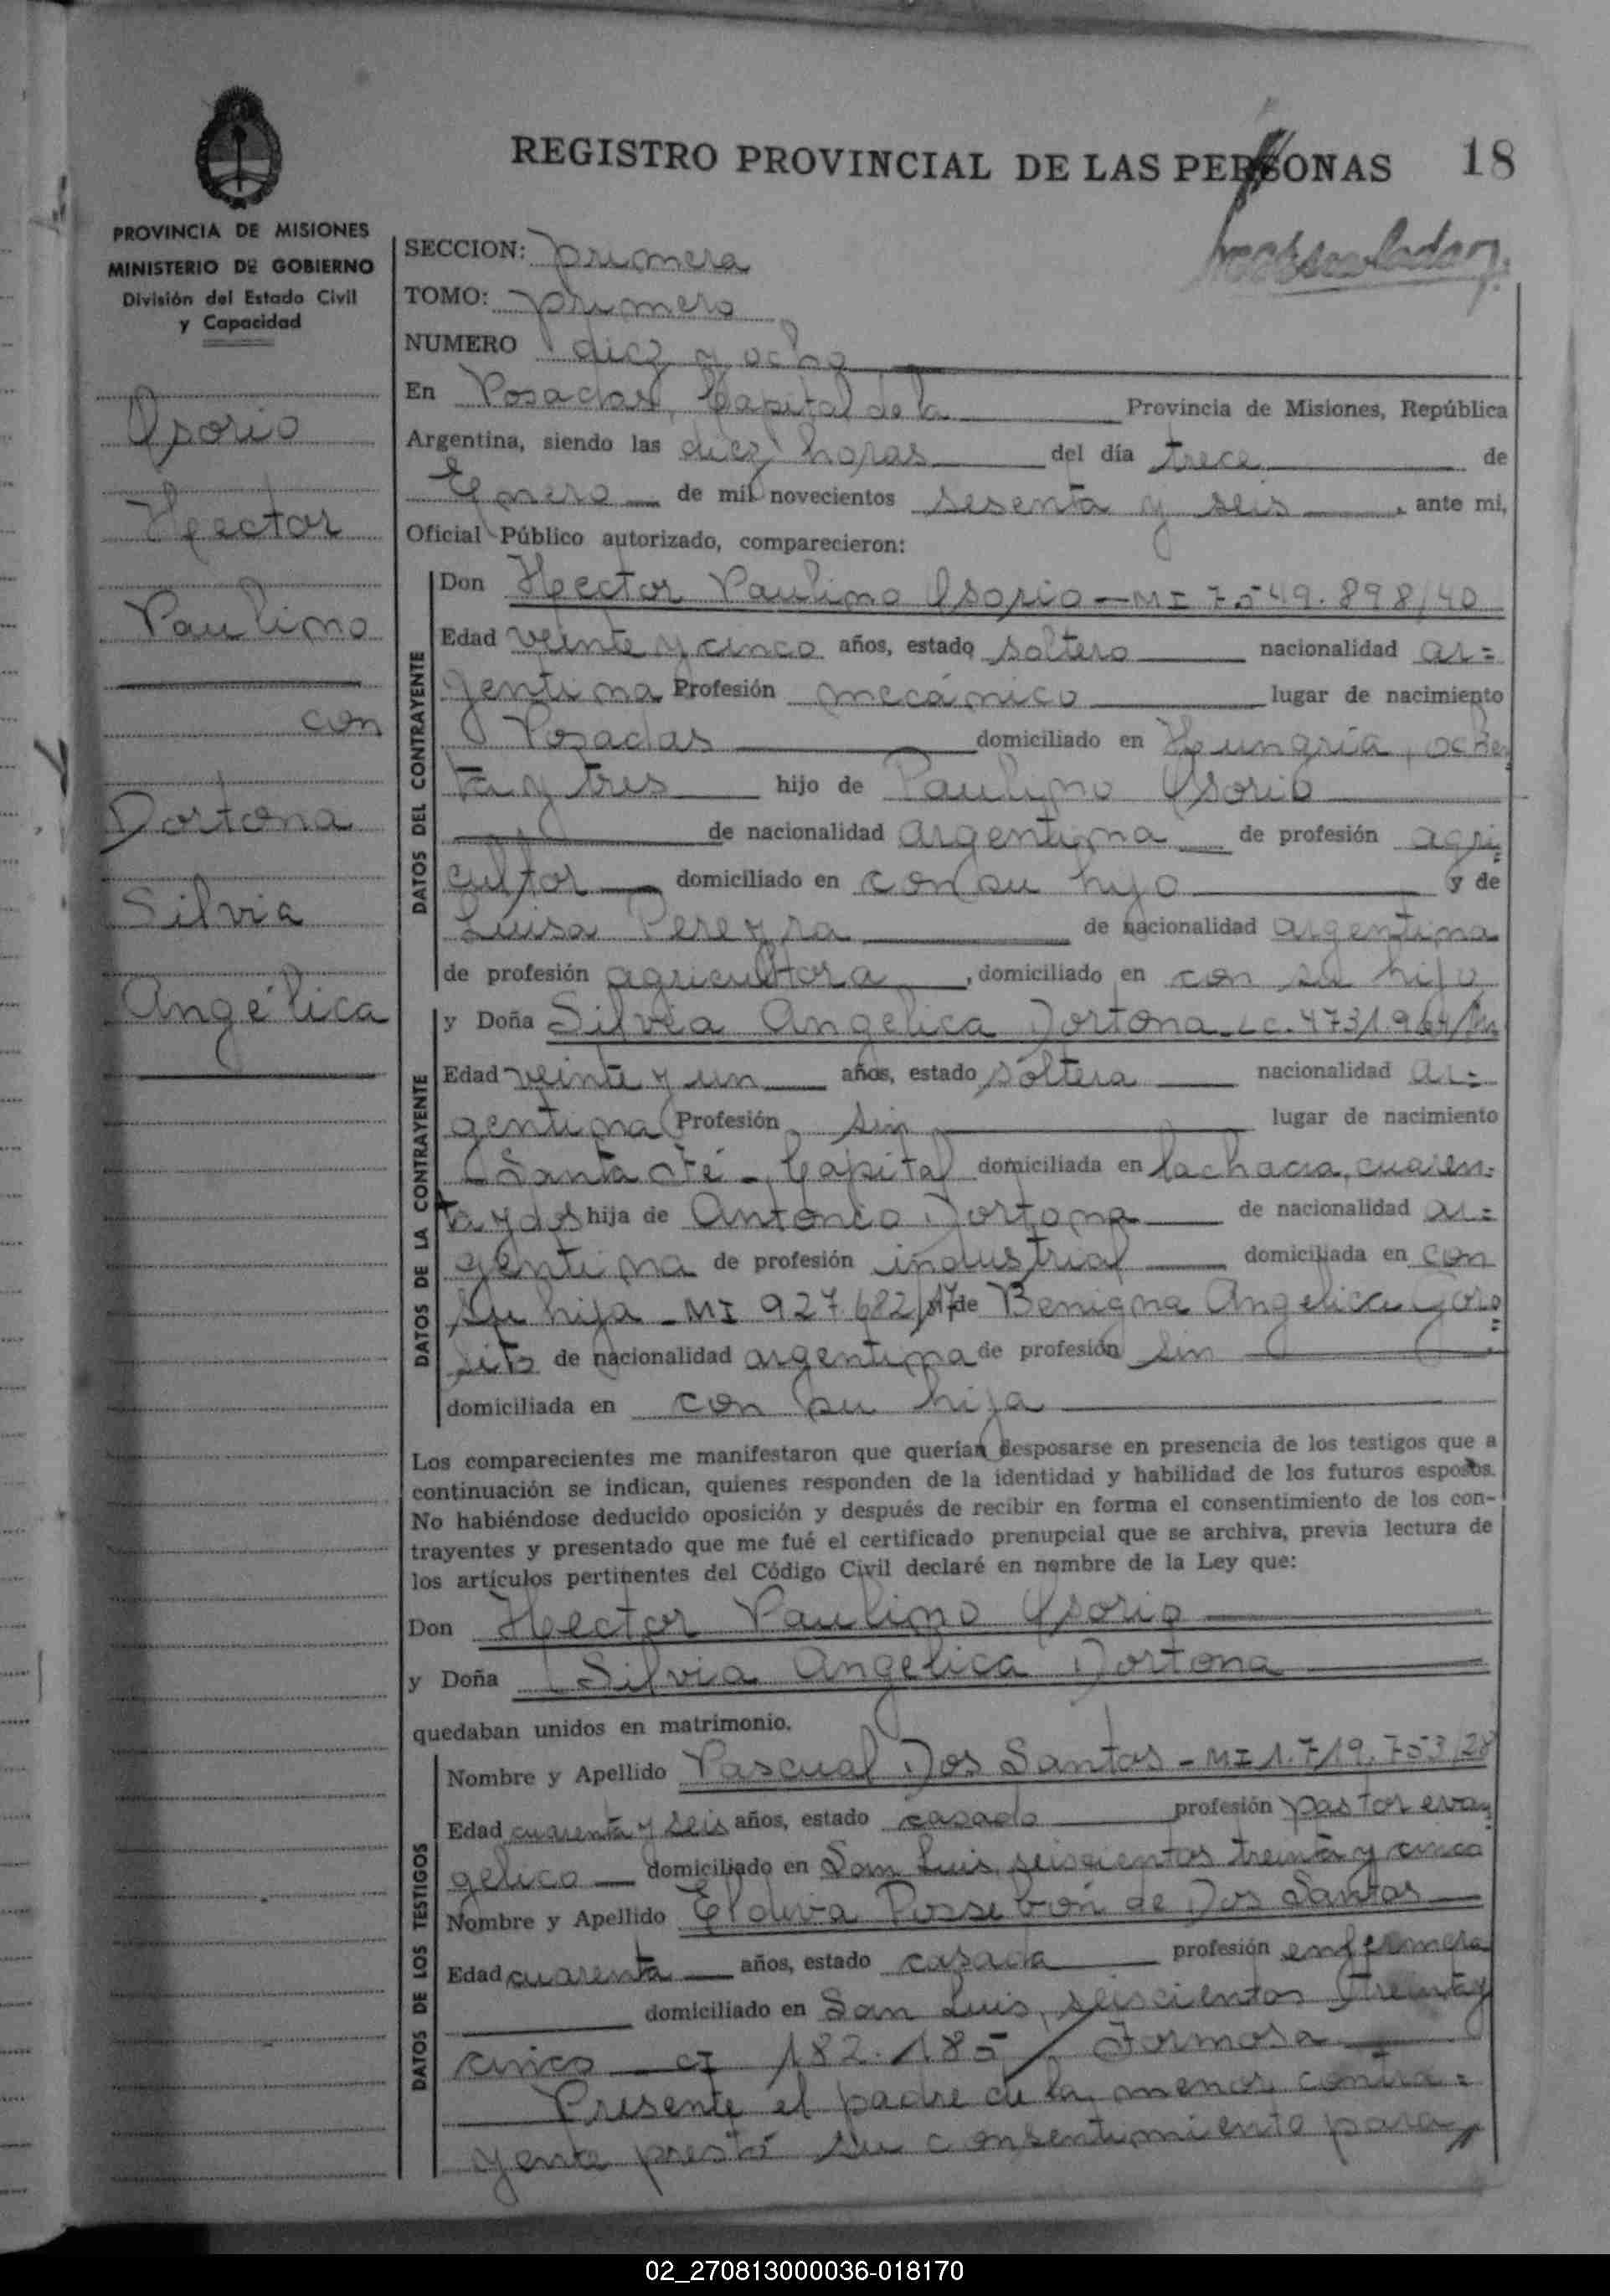 REGISTRO PROVINCIAL DE LAS PERSONAS 18
PROVINCIA DE MISIONES
MINISTERIO DE GOBIERNO
División del Estado Civil
y Capacidad
Osorio
Hector
Paulino
con
Dortona
Silvia
Angélica
SECCION: primera
TOMO: primero
NUMERO diez y ocho
En Posadas, Capital de la Provincia de Misiones, República
Argentina, siendo las diez horas del día trece de
Enero de mil novecientos sesenta y seis, ante mi,
Oficial Público autorizado, comparecieron:
DATOS DEL CONTRAYENTE
Don Hector Paulino Osorio - MI 7.549.898/40
Edad veinte y cinco años, estado soltero nacionalidad ar=
gentina Profesión mecánico lugar de nacimiento
Posadas domiciliado en Hungría, ochen
ta y tres hijo de Paulino Osorio
de nacionalidad argentina de profesión agri=
cultor domiciliado en con su hijo y de
Luisa Pereyra de nacionalidad argentina
de profesión agricultora, domiciliado en con su hijo
DATOS DE LA CONTRAYENTE
y Doña Silvia Angelica Dortona LC. 4731.964
Edad veinte y un años, estado soltera nacionalidad ar=
gentina Profesión sin lugar de nacimiento
Santa Fé - Capital domiciliada en la chacra, cuaren=
ta y dos hija de Antonio Dortona de nacionalidad ar=
gentina de profesión industrial domiciliada en con
su hija - MI 927.682/17 y de Benigna Angelica Goro
sito de nacionalidad argentina de profesión sin
domiciliada en con su hija
Los comparecientes me manifestaron que querían desposarse en presencia de los testigos que a
continuación se indican, quienes responden de la identidad y habilidad de los futuros esposos.
No habiéndose deducido oposición y después de recibir en forma el consentimiento de los con-
trayentes y presentado que me fué el certificado prenupcial que se archiva, previa lectura de
los artículos pertinentes del Código Civil declaré en nombre de la Ley que:
Don Hector Paulino Osorio
y Doña Silvia Angelica Dortona
quedaban unidos en matrimonio.
DATOS DE LOS TESTIGOS
Nombre y Apellido Pascual Dos Santos - MI 1.719.753/28
Edad cuarenta y seis años, estado casado profesión pastor evan
gelico domiciliado en San Luis, seiscientos treinta y cinco
Nombre y Apellido Eldiva Possebón de Dos Santos
Edad cuarenta años, estado casada profesión enfermera
domiciliado en San Luis, seiscientos treinta y
cinco CI 182.185/ Formosa
Presente el padre de la menor contra=
yente prestó su consentimiento para
02_270813000036-018170